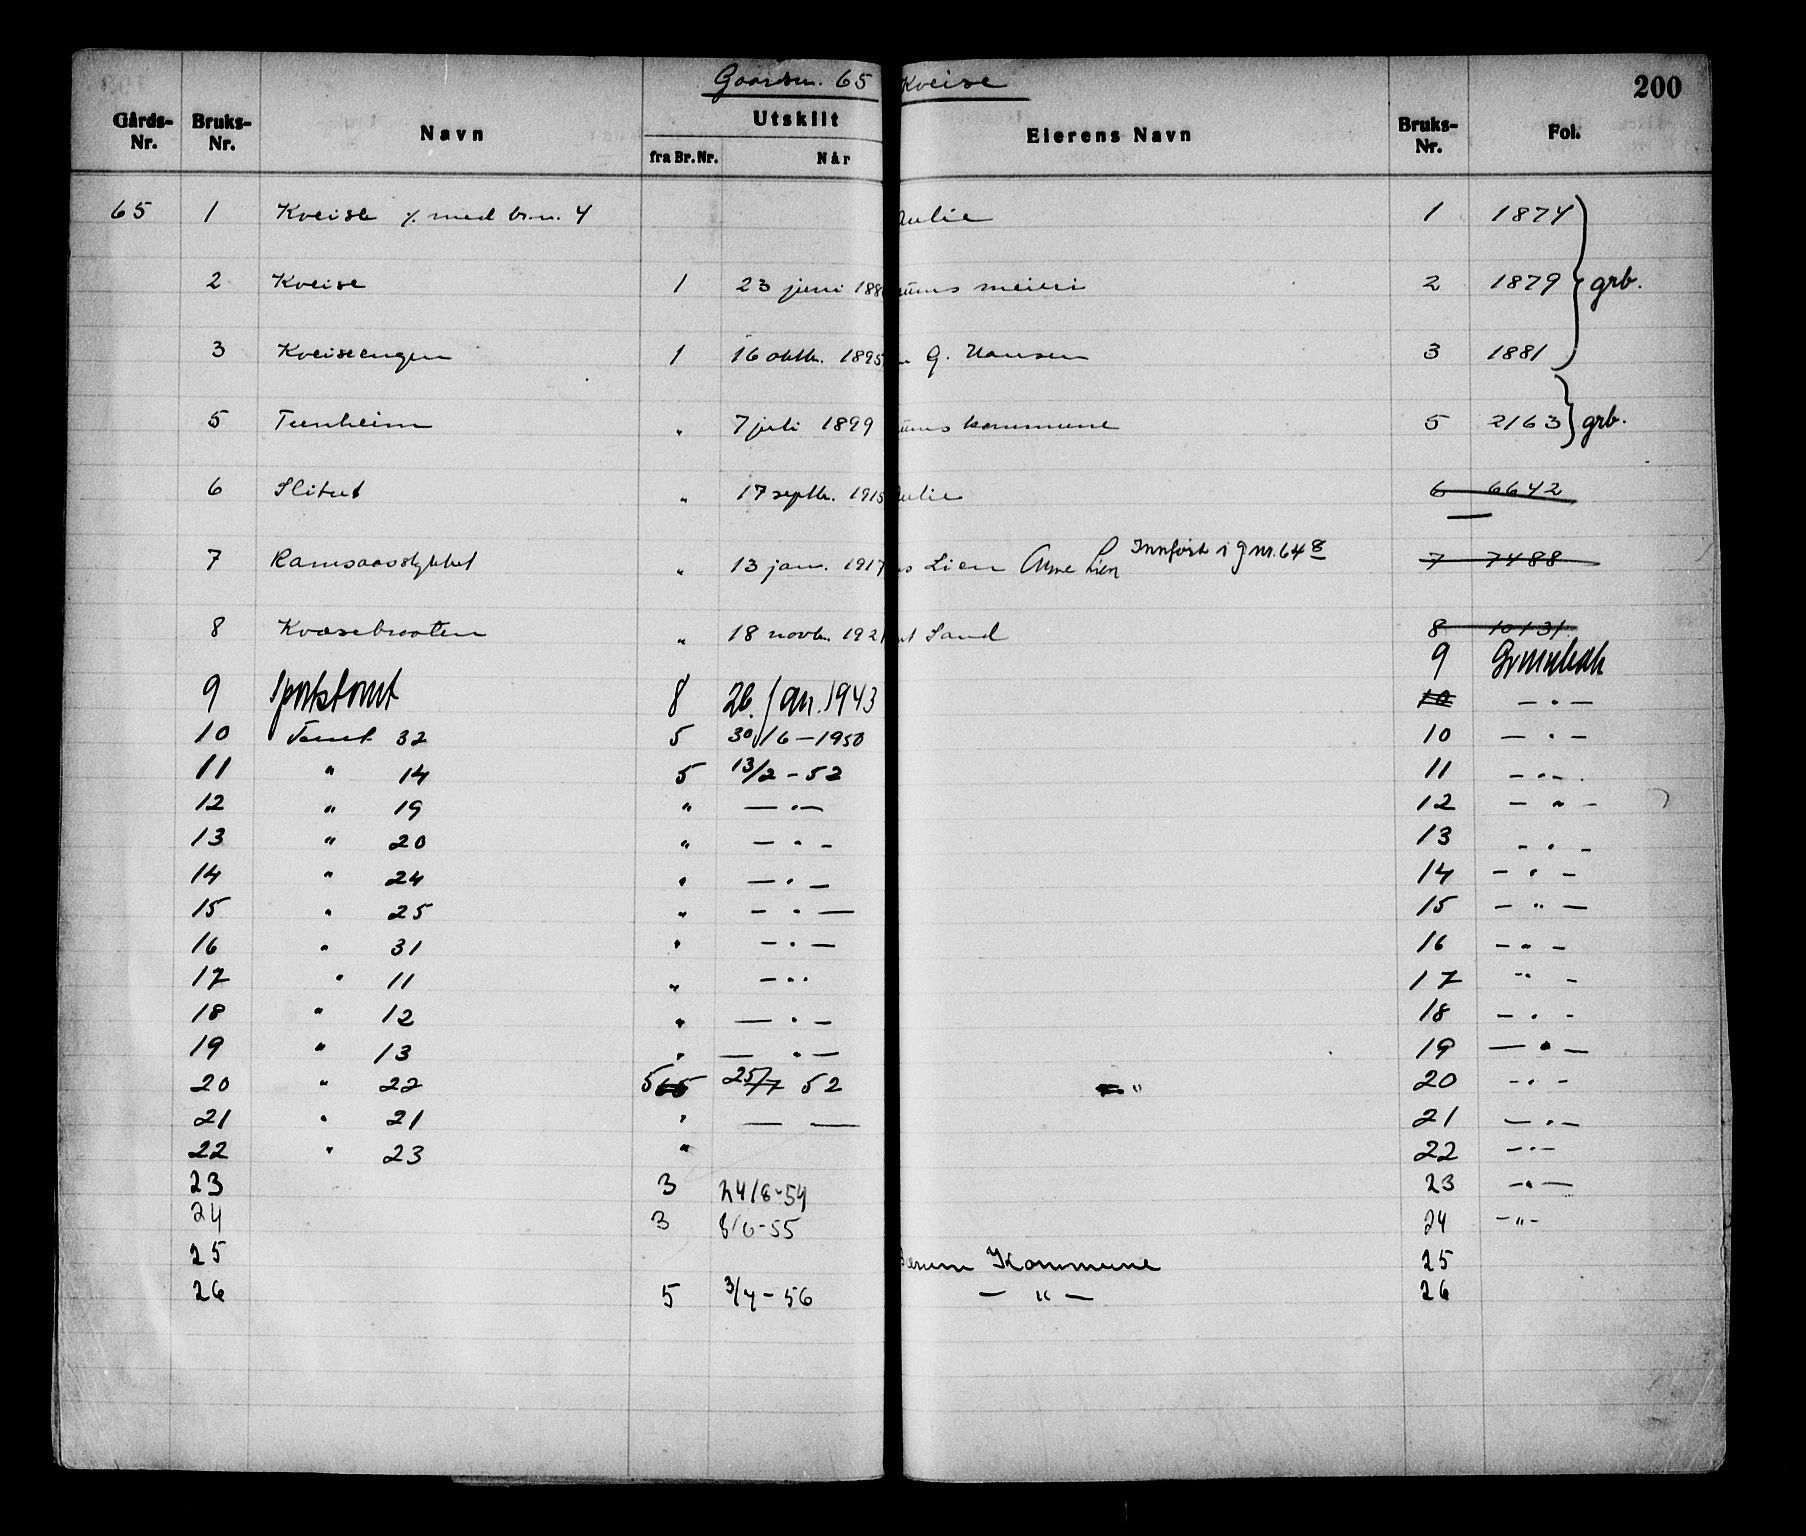 Gaardsn. 65 Kveise 200
Gårds-Nr. Bruks-Nr. Navn Utskilt fra Br.Nr. Når Eierens Navn Bruks-Nr. Fol.
65 1 Kveise % med br.n. 4 1 1874
2 Kveise 1 23 juni 188 ums meieri 2 1879 } grb.
3 Kveiseengen 1 16 oktbr. 1895 G. Hansen 3 1881
5 Tunheim " 7 juli 1899 ums kommune 5 2163 } grb.
6 Slitut " 17 septbr. 1915 6 6642
7 Ramsaasstykket " 13 jan. 1917 s Lien Anne Lien Innført i gnr. 64 8 7 7488
8 Kvæsebraaten " 18 novbr. 192 Sand 8 10131
9 Grunnbok
9 Sportstomt 8 26. jan. 1943 10 — " —
10 Tomt 32 5 30/6 – 1950 10 — " —
11 " 14 5 13/2 – 52 11 — " —
12 " 19 " — " — 12 — " —
13 " 20 " — " — 13 — " —
14 " 24 " — " — 14 — " —
15 " 25 " — " — 15 — " —
16 " 31 " — " — 16 — " —
17 " 11 " — " 17 " —
18 " 12 " — " — 18 — " —
19 " 13 " — " — 19 — " —
20 " 22 5 25/7 52 " 20 — " —
21 " 21 " — — 21 — " —
22 " 23 " 22 — " —
23 3 24/8-54 23 — " —
24 3 8/6-55 24 — " —
25 Bærum Kommune 25
26 5 3/4 – 56 — " — 26